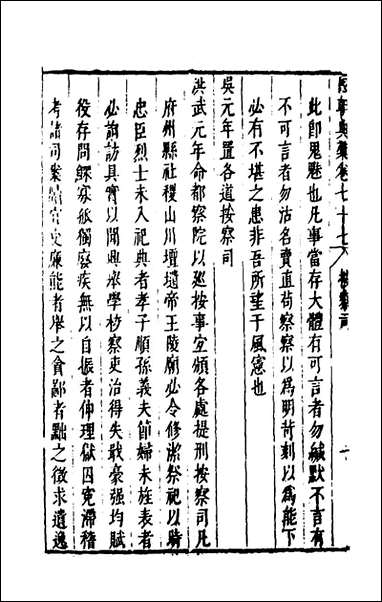 歷朝典彙卷七十七 按察司 一
此卽鬼魅也凡事當存大體有可言者勿緘默不言有
不可言者勿沽名賣直苟察察以爲明苛刻以爲能下
必有不堪之患非吾所望于風憲也
吳元年置各道按察司
洪武元年命都察院以廵按事宜頒各處提刑按察司凡
府州縣社稷山川壇壝帝王陵廟必令修潔祭祀以時
忠臣烈士未入祀典者孝子順孫義夫節婦未旌表者
必詢訪具實以聞興舉學校察吏治得失戢豪强均賦
役存問鰥寡孤獨廢疾無以自振者伸理獄囚寃滯稽
考諸司案牘官吏廉能者舉之貪鄙者黜之徵求遺逸